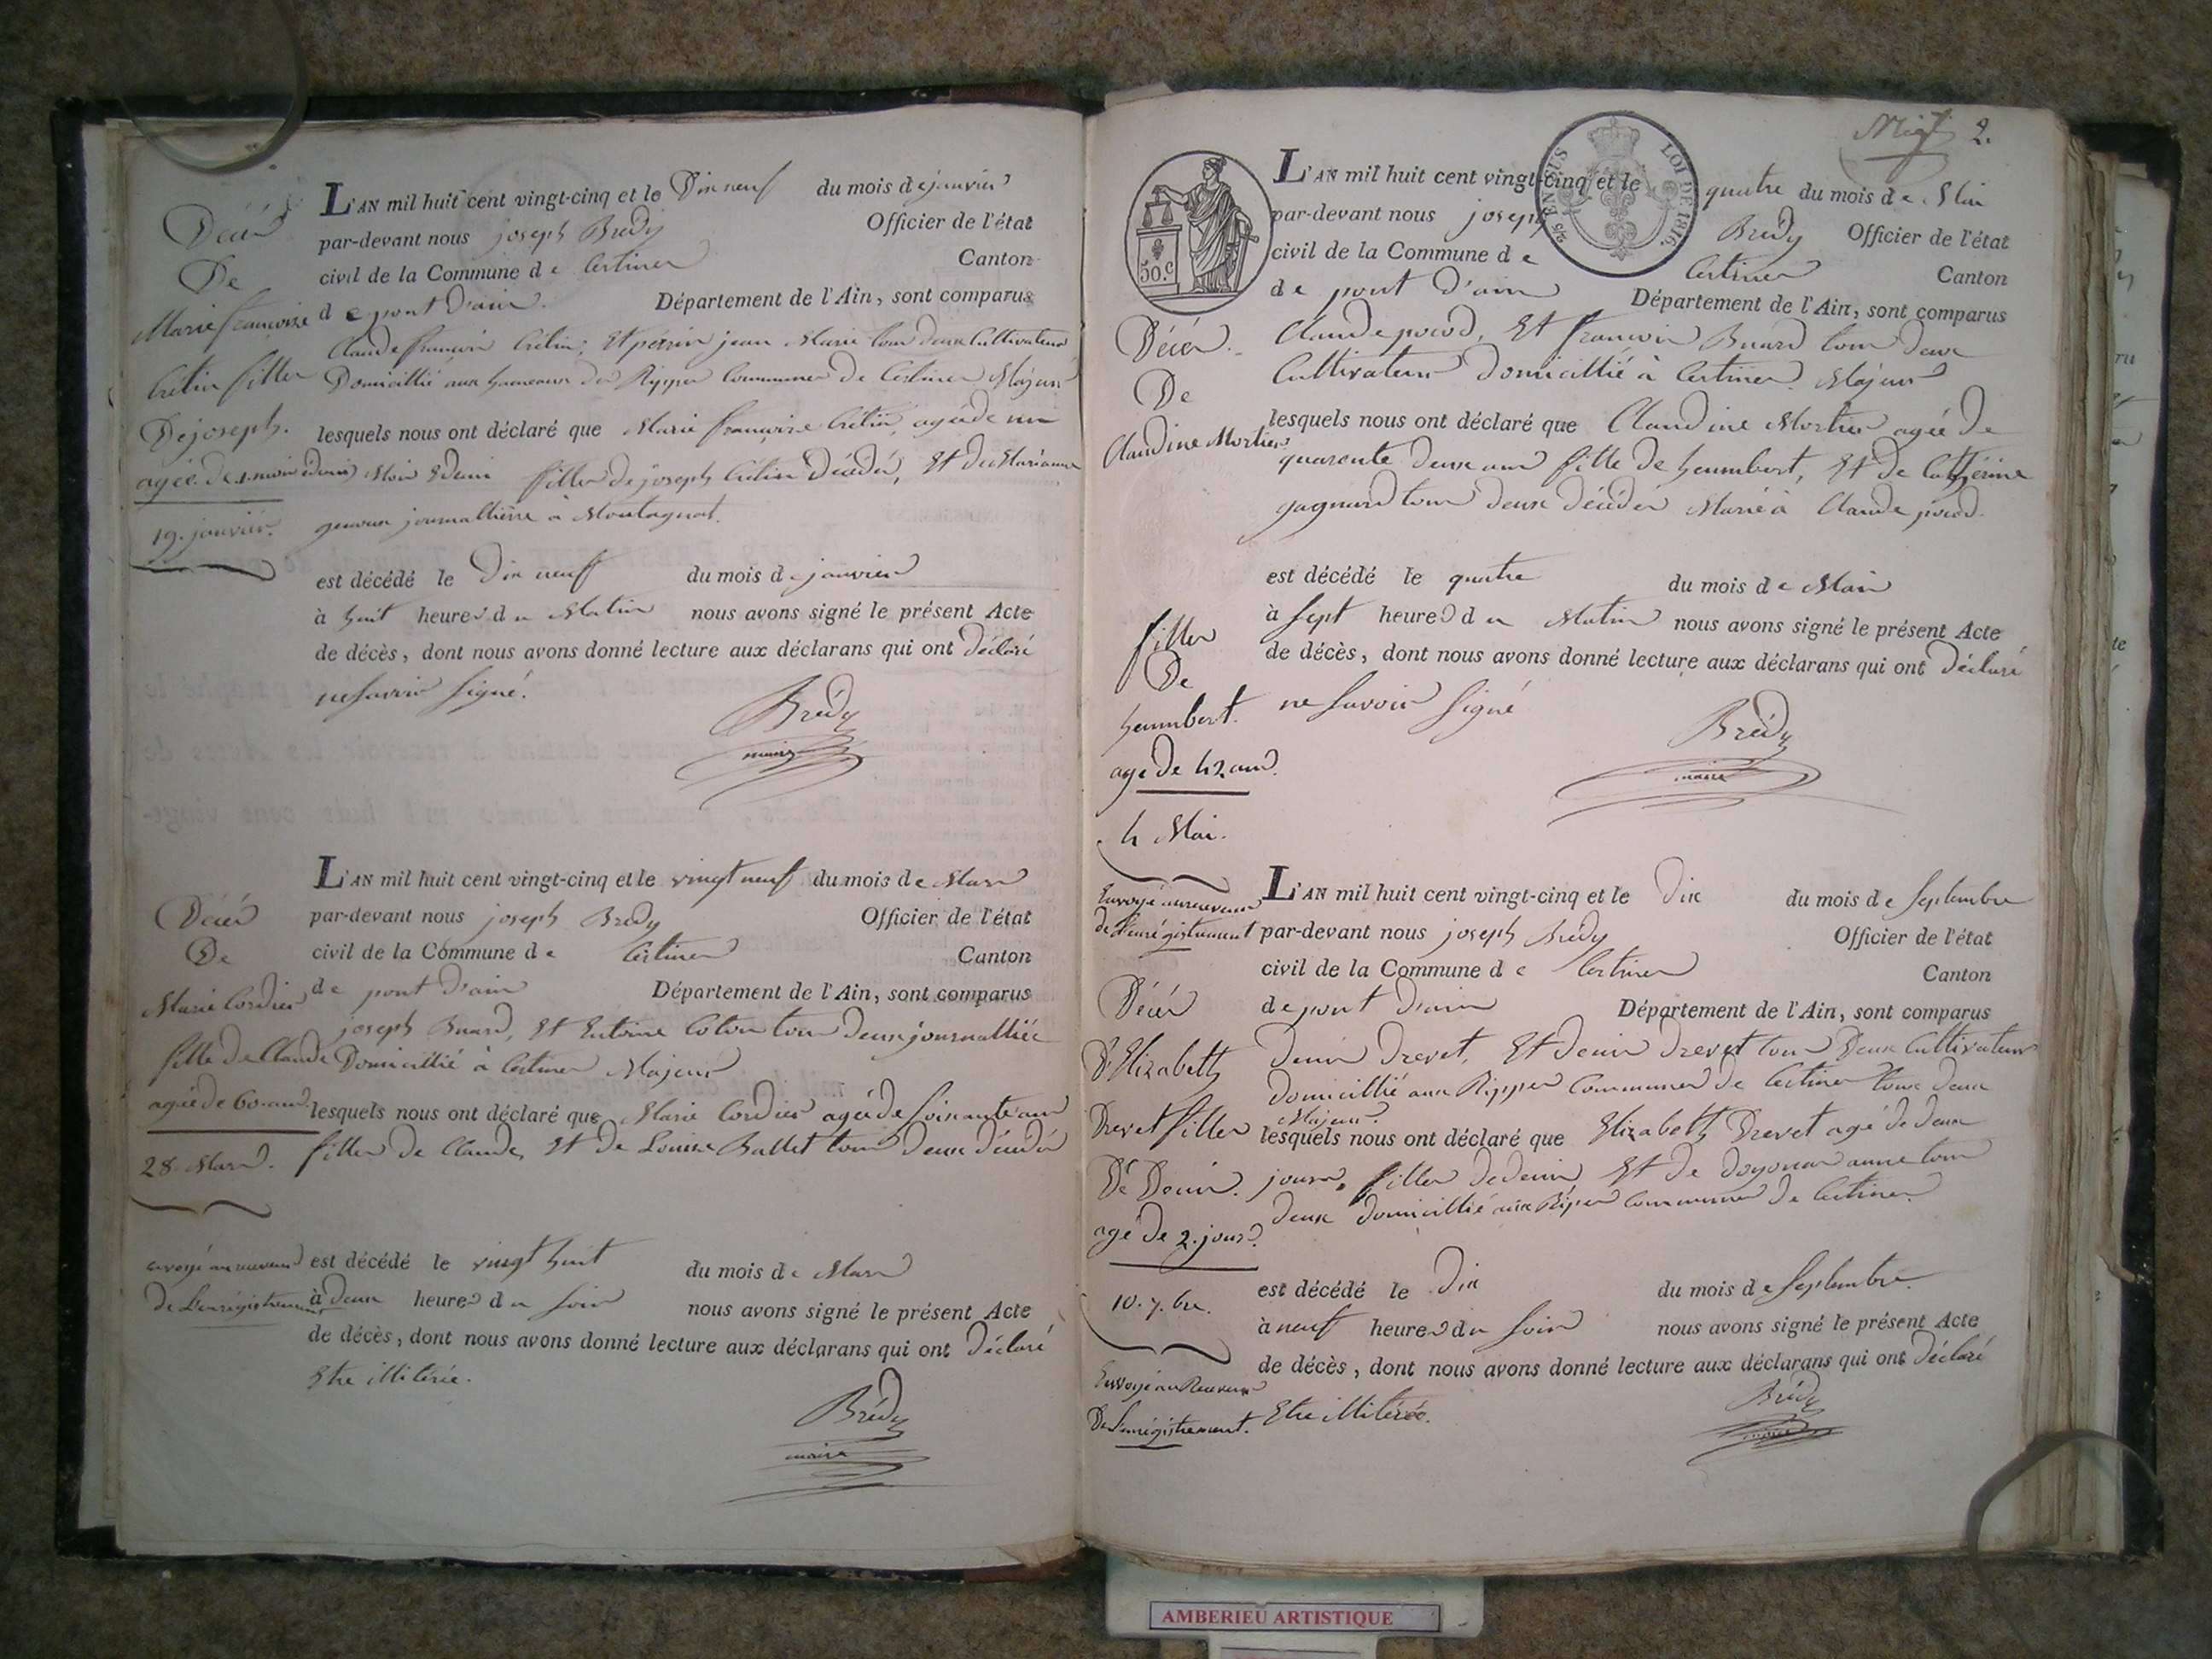 Décès
De
Marie françoise
Crétin filles
De joseph.
agée de 1. mois & demi
19. janvier.
L'AN mil huit cent vingt-cinq et le Dix neuf du mois de janvier
par-devant nous joseph Brédy Officier de l'état
civil de la Commune de Certines Canton
de pont D'ain. Département de l'Ain, sont comparus
Claude françois Crétin, Et périn jean Marie tous deux Cultivateurs
Domicillié aux hameaux des Rippes Communes de Certines Majeurs
lesquels nous ont déclaré que Marie françoise Crétin, agée de un
Mois & Demi filles de joseph Crétin Décédés, Et de Marianne
journallière à Montagnat.
est décédé le Dix neuf du mois de janvier
à huit heures du Matin nous avons signé le présent Acte
de décès, dont nous avons donné lecture aux déclarans qui ont Déclaré
ne savoir signé.
Brédy
maire
Décès
De
Marie Cordier
fille de Claude
agée de 60. ans
28. Mars.
envoyé au receveur
de L'enrégistrement
L'AN mil huit cent vingt-cinq et le vingt neuf du mois de Mars
par-devant nous joseph Brédy Officier de l'état
civil de la Commune de Certines Canton
de pont D'ain Département de l'Ain, sont comparus
joseph Buard, Et Entoine Coton tous Deux journalliée
Domicillié à Certines Majeurs
lesquels nous ont déclaré que Marie Cordier agée de soixante ans
filles de Claude, Et de Louise Ballet tous Deux Décédés
est décédé le vingt huit du mois de Mars
à deux heures du soir nous avons signé le présent Acte
de décès, dont nous avons donné lecture aux déclarans qui ont Déclaré
Etre illitérée.
Brédy
maire
2.
50.C
LOI DE 1816.
Décès.
De
Claudine Mortier
filles
De
heumbert.
age de 42. ans.
4 Mai.
Envoyé au receveur
de L'enrégistrement
L'AN mil huit cent vingt-cinq et le quatre du mois de Mai
par-devant nous joseph Brédy Officier de l'état
civil de la Commune de Certines Canton
de pont D'ain Département de l'Ain, sont comparus
Claude pocod, Et françois Buard tous deux
Cultivateurs Domicillié à Certines. Majeurs
lesquels nous ont déclaré que Claudine Mortier agée De
quarente Deux ans fille de heumbert, Et de Cathérine
gagnard tous deux Décédés Marié à Claude pocod.
est décédé le quatre du mois de Mai
à sept heures du Matin nous avons signé le présent Acte
de décès, dont nous avons donné lecture aux déclarans qui ont Déclaré
ne savoir signé
Brédy
maire
Décès
D'Elizabeth
Drevet filles
De Denis.
agé de 2. jours.
10. 7. bre.
Envoyé au Receveur
De L'enrégistrement.
L'AN mil huit cent vingt-cinq et le Dix du mois de Septembre
par-devant nous joseph Brédy Officier de l'état
civil de la Commune de Certines Canton
de pont D'ain Département de l'Ain, sont comparus
Denis Drevet, Et Denis Drevet tous Deux Cultivateurs
Domicillié aux Rippes Communes de Certines tous deux
Majeurs
lesquels nous ont déclaré que Elizabeth Drevet agé de deux
jours, filles de denis Et de doyonar anne tous
deux domicillié aux Ripes Communes de Certines.
est décédé le Dix du mois de Septembre.
à neuf heures du soir nous avons signé le présent Acte
de décès, dont nous avons donné lecture aux déclarans qui ont Déclaré
Etre illitérée.
Brédy
maire
AMBERIEU ARTISTIQUE